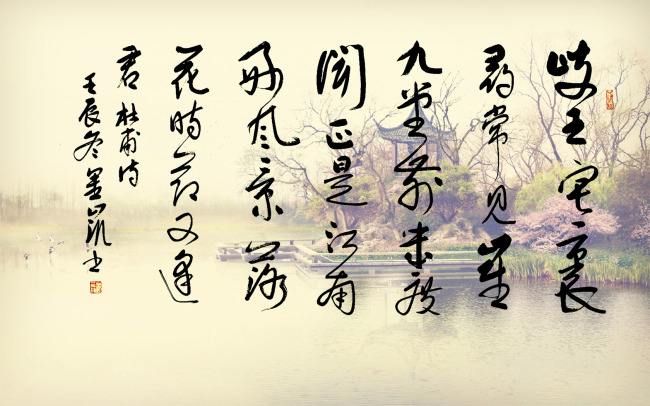 岐王宅裏
尋常见崔
九堂前幾度
聞正是江南
好风景落
花时節又逢
君 杜甫诗
壬辰冬 书